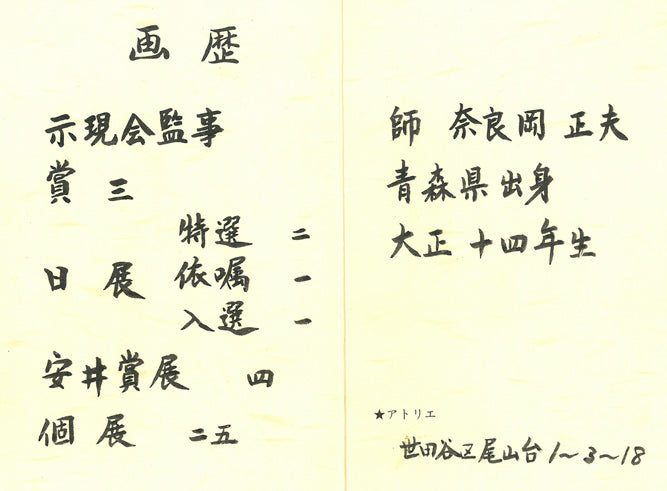 画歴
示現会監事
賞 三
特選 二
日展 依嘱 一
入選 一
安井賞展 四
個展 二五
師 奈良岡 正夫
青森県出身
大正十四年生
★アトリエ
世田谷区尾山台1~3~18